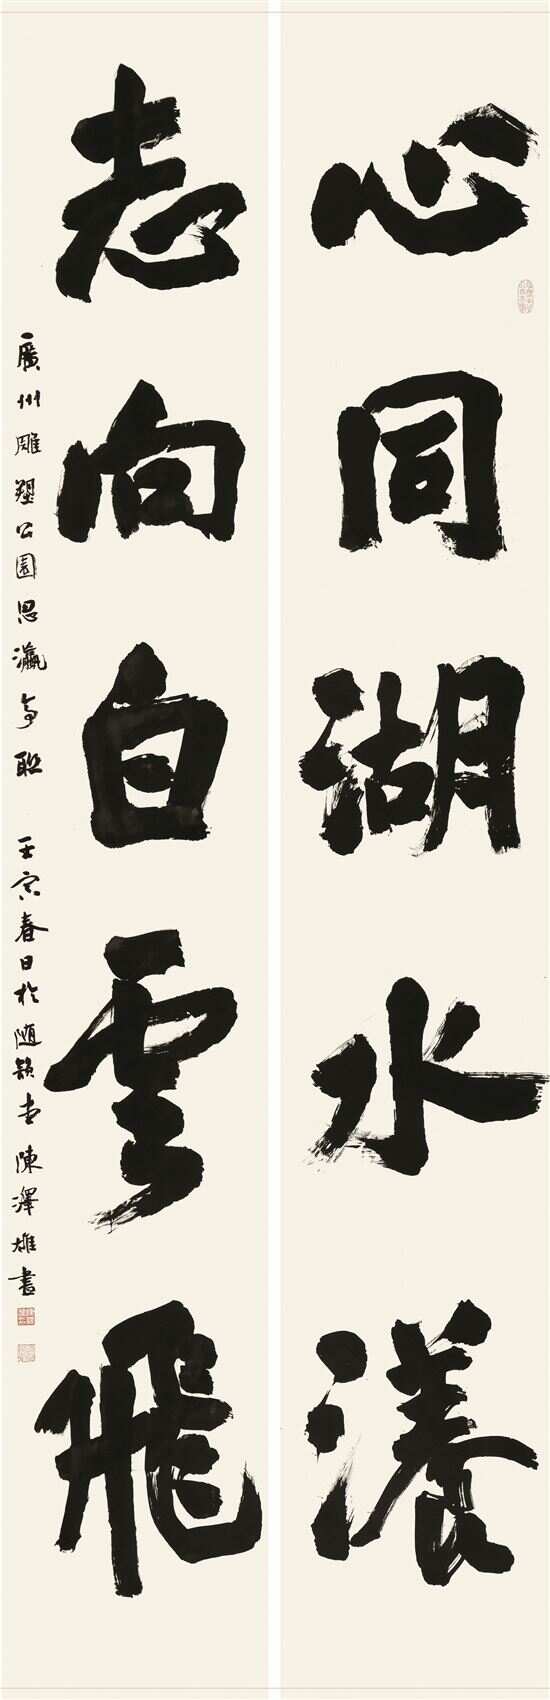 心同湖水漾
志向白雲飛
廣州雕塑公園思瀛亭聯 壬寅春日於随穎堂陳澤雄書